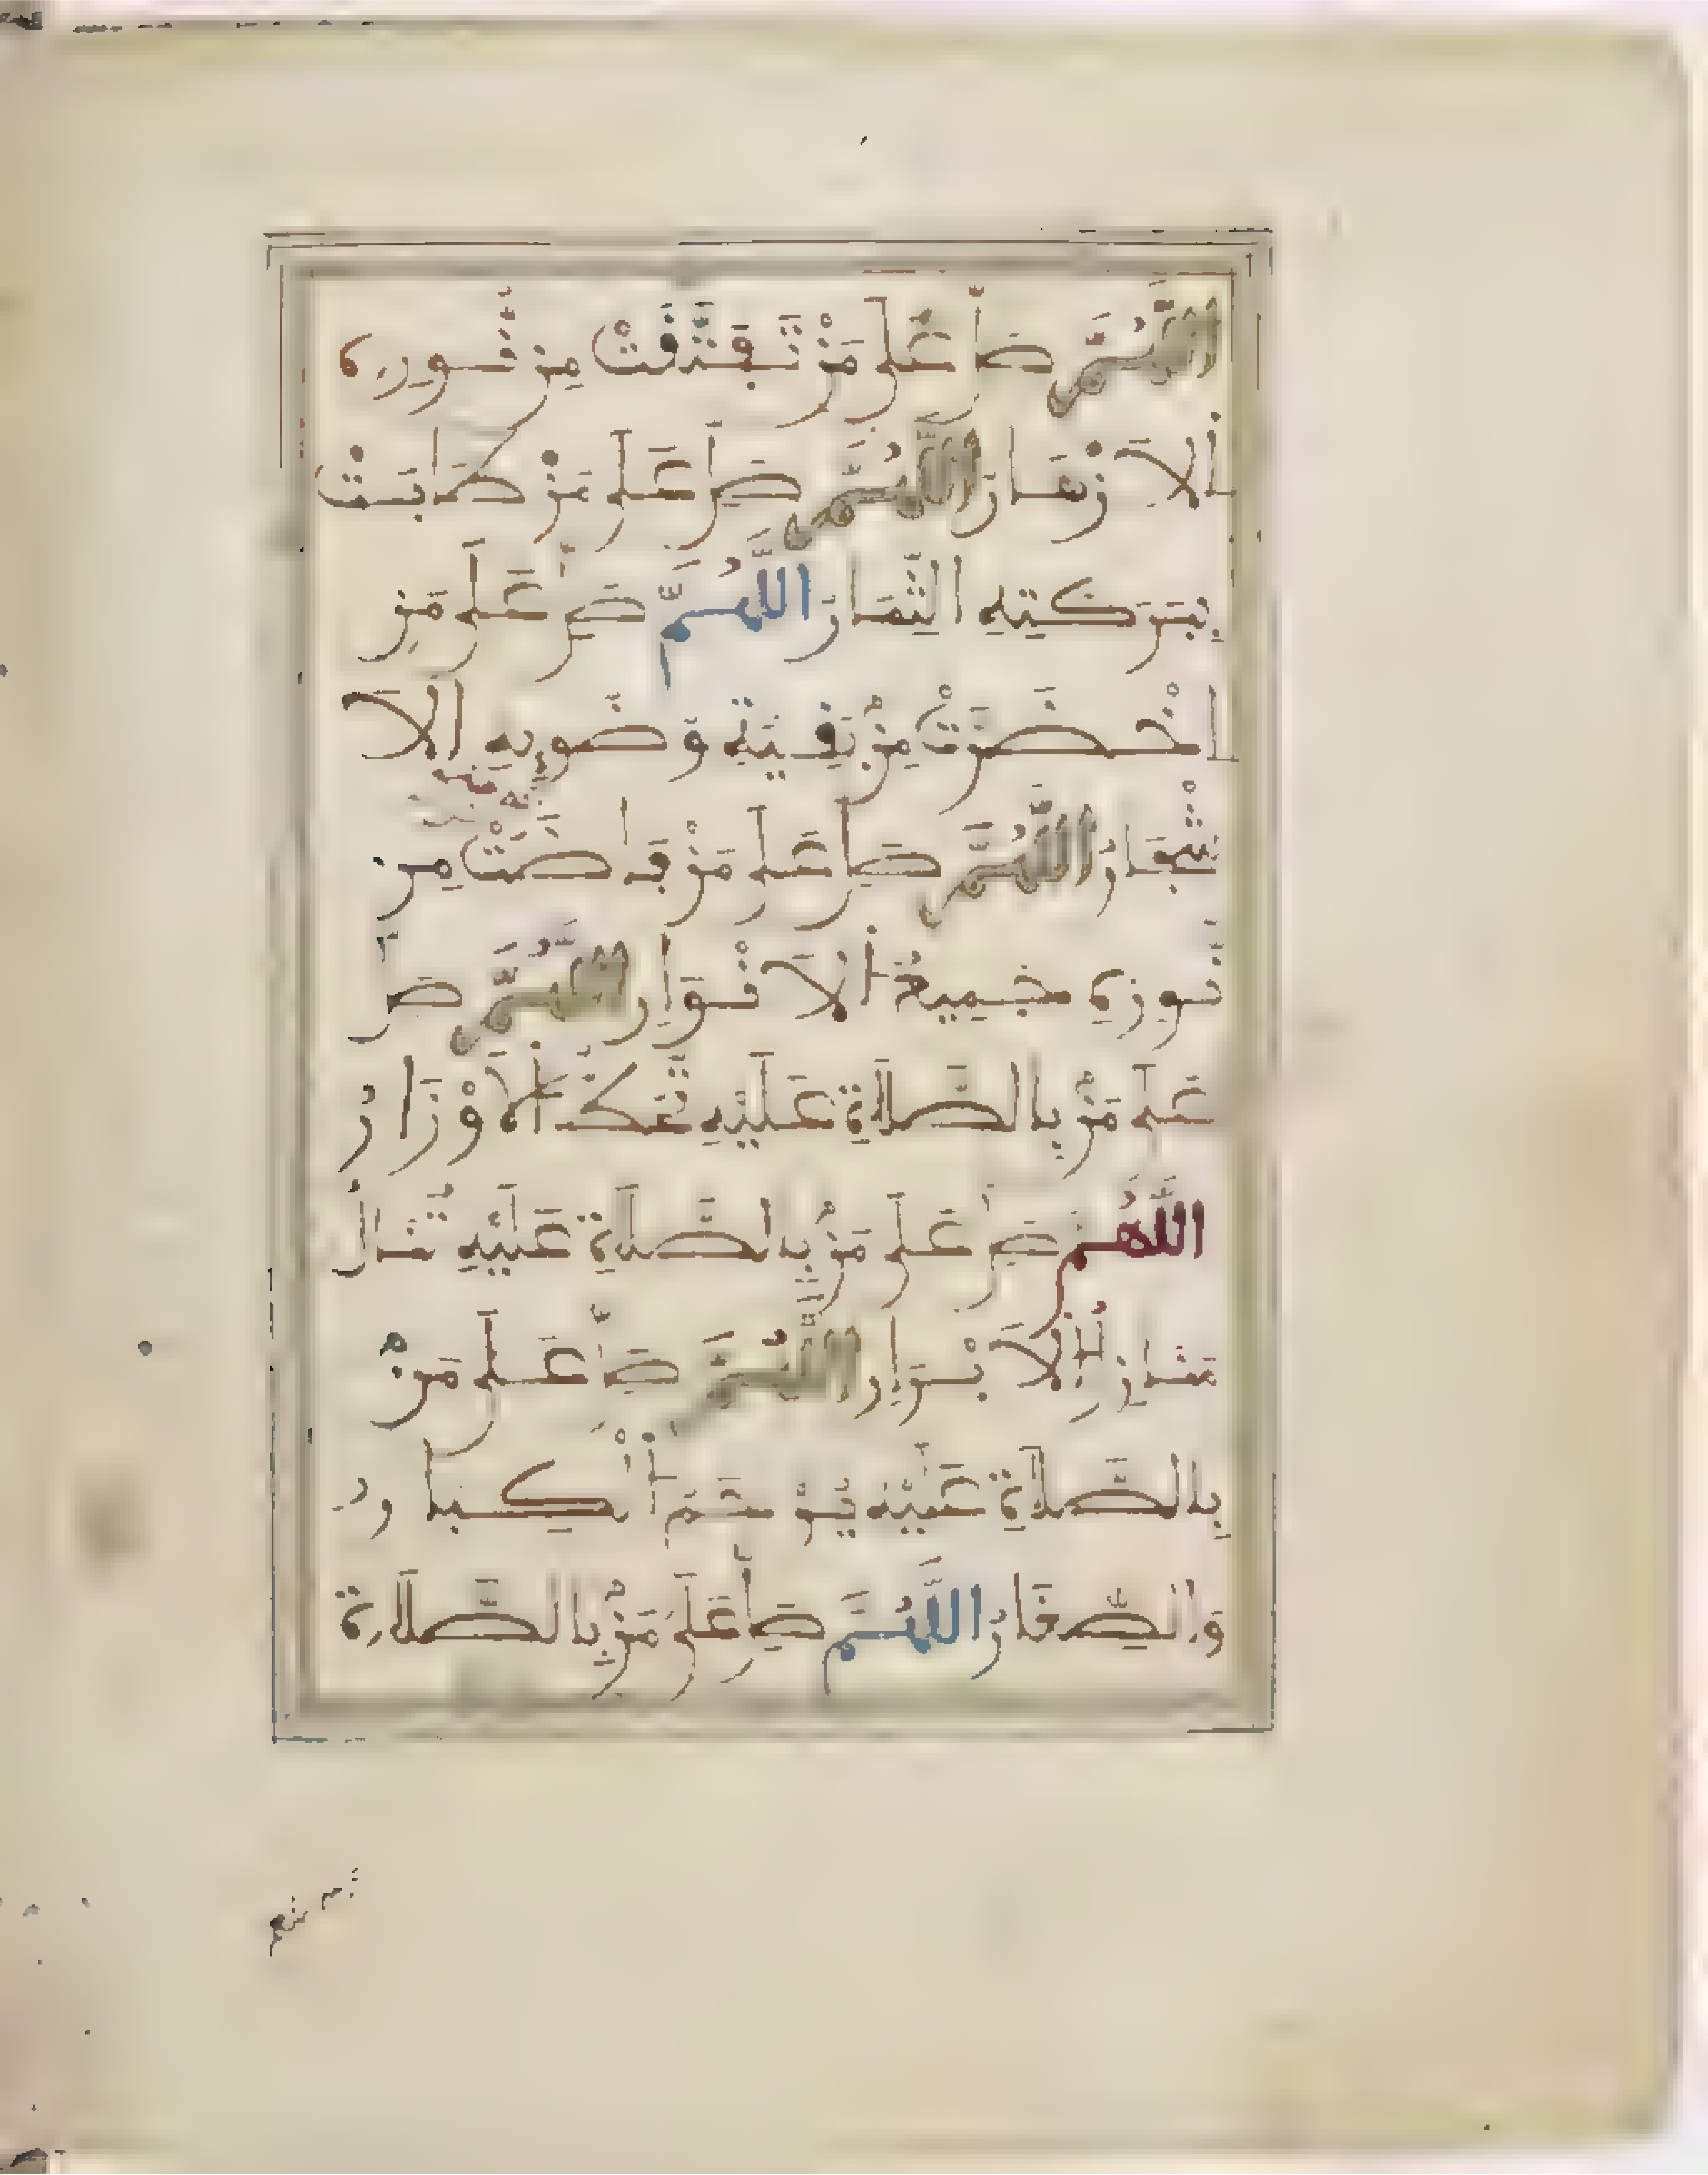 اللَّهُمَّ صَلِّ عَلَى مَنْ تَفَتَّقَتْ مِن نُّورِهِ
الَازْهَارُ اللَّهُمَّ صَلِّ عَلَى مَنْ طَابَتْ
بِبَرَكَتِهِ الثِّمَارُ اللَّهُمَّ صَلِّ عَلَى مَنِ
اخْضَرَّتْ مِنْ بَقِيَّةِ وَضُوئِهِ الَا
شْجَارُ اللَّهُمَّ صَلِّ عَلَى مَنْ فَاضَتْ مِن
نُّورِهِ جَمِيعُ الَانْوَارِ اللَّهُمَّ صَلِّ
عَلَى مَنْ بِالصَّلَاةِ عَلَيْهِ تُحَطُّ الَاوْزَارُ
اللَّهُمَّ صَلِّ عَلَى مَنْ بِالصَّلَاةِ عَلَيْهِ تُنَالُ
مَنَازِلُ الَابْرَارِ اللَّهُمَّ صَلِّ عَلَى مَنْ
بِالصَّلَاةِ عَلَيْهِ يُرْحَمُ الْكِبَارُ
وَالصِّغَارُ اللَّهُمَّ صَلِّ عَلَى مَنْ بِالصَّلَاةِ